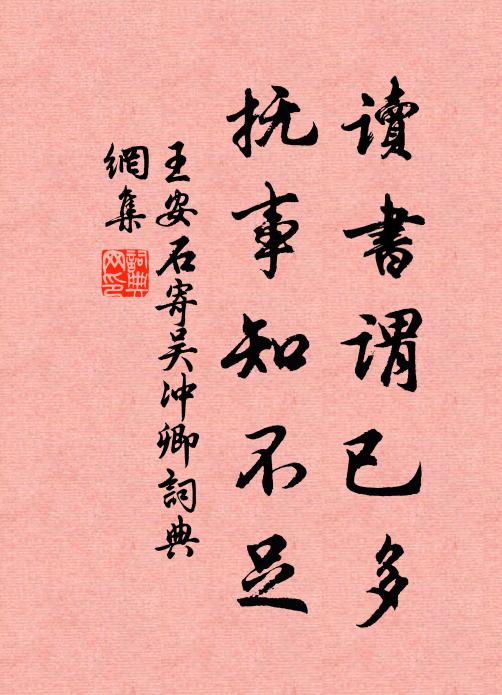 讀書謂已多
抚事知不足
王安石寄吴冲卿詞典
網集
詞典
网印